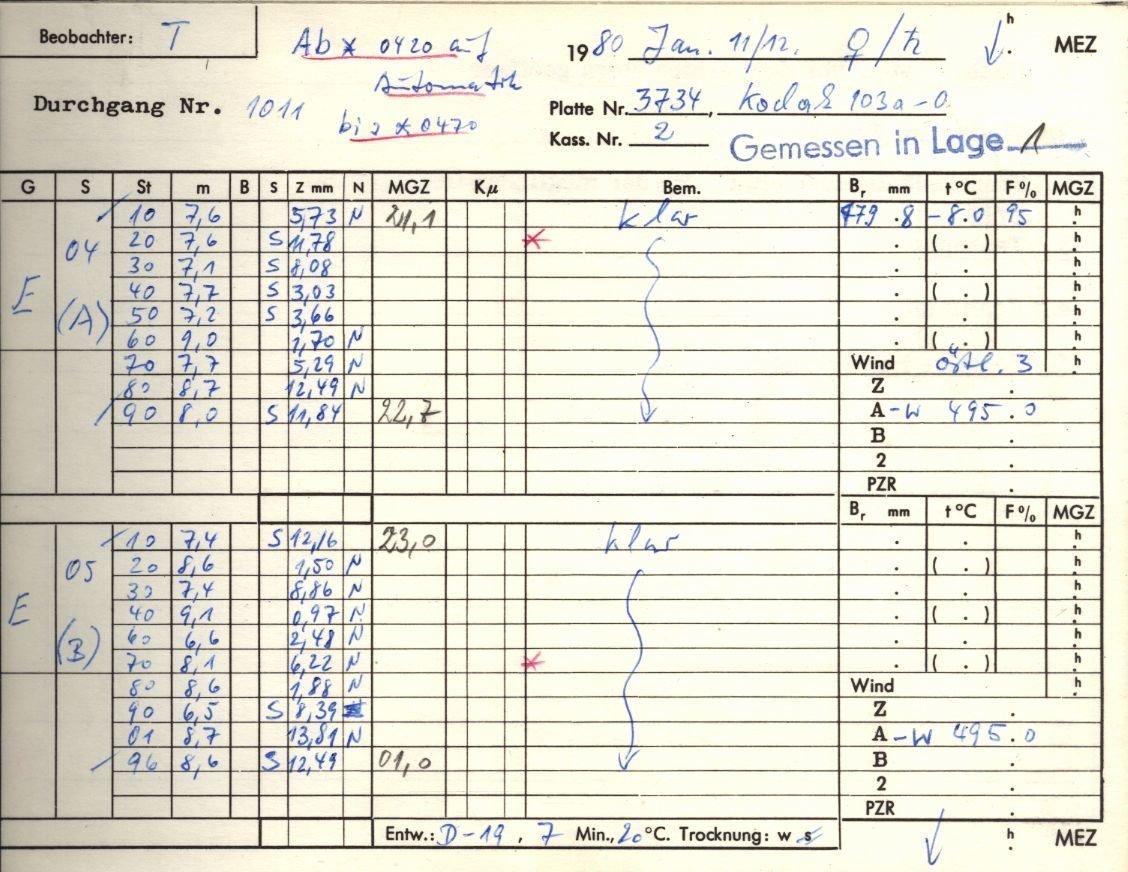 Beobachter: T
Ab * 0420 auf Automatik bis * 0470
1980 Jan. 11/12. ♀/♄ h MEZ
Durchgang Nr. 1011
Platte Nr. 3734, Kodak 103a-O
Kass. Nr. 2
Gemessen in Lage 1
G S St m B S Z mm N MGZ Kμ Bem. Br mm t °C F % MGZ
E 04 (A)
10 7,6 5,73 N 21,1 klar 479.8 -8.0 95 h
20 7,6 S 11,78 * . ( . ) h
30 7,1 S 8,08 . . h
40 7,7 S 3,03 . ( . ) h
50 7,2 S 3,66 . . h
60 9,0 1,70 N . ( . ) h
70 7,7 5,29 N Wind östl. 3 h
80 8,7 12,49 N Z .
90 8,0 S 11,84 22,7 A -W 495.0
B .
2 .
PZR .
Br mm t °C F % MGZ
E 05 (B)
10 7,4 S 12,16 23,0 klar . . h
20 8,6 1,50 N . ( . ) h
30 7,4 8,86 N . . h
40 9,1 0,97 N . ( . ) h
60 6,6 2,48 N . . h
70 8,1 6,22 N * . ( . ) h
80 8,6 1,88 N Wind h
90 6,5 S 8,39 Z .
01 8,7 13,81 N A -W 495.0
96 8,6 S 12,49 01,0 B .
2 .
PZR .
Entw.: D-19, 7 Min., 20 °C. Trocknung: w s h MEZ